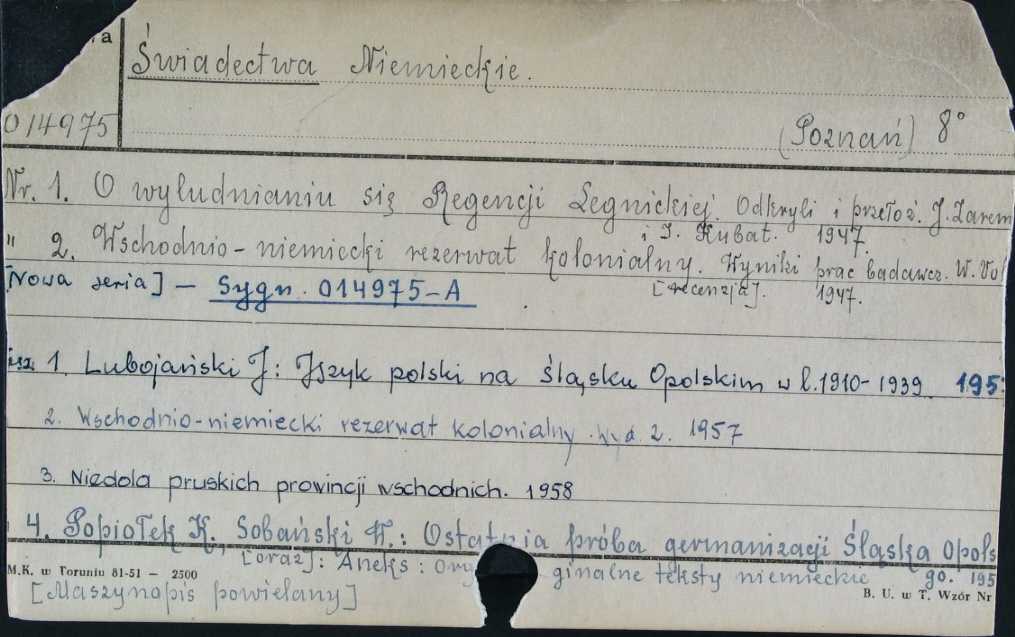 a
Świadectwa Niemieckie.
014975
(Poznań) 8°
Nr. 1. O wyludnianiu się Regencji Legnickiej. Odkryli i przełoż. J. Zarem
i J. Kubat. 1947.
" 2. Wschodnio-niemiecki rezerwat kolonialny. Wyniki prac badawcz. W. Vo
[recenzja]. 1947.
[Nowa seria] - Sygn. 014975-A
1. Lubojański J: Język polski na Śląsku Opolskim w l. 1910-1939. 195
2. Wschodnio-niemiecki rezerwat kolonialny. Wyd. 2. 1957
3. Niedola pruskich prowincji wschodnich. 1958
4. Popiołek K., Sobański W.: Ostatnia próba germanizacji Śląska Opols
[oraz]: Aneks: Oryginalne teksty niemieckie go. 195
M.K. w Toruniu 81-51 - 2500
[Maszynopis powielany]
B. U. w T. Wzór Nr